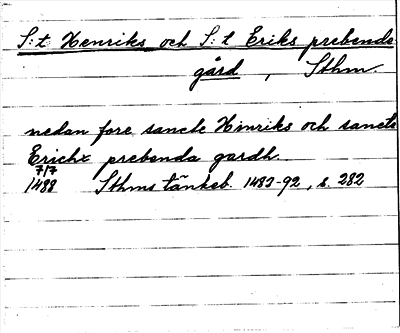 S:t Henriks och S:t Eriks prebende
gård, Sthm.
nedan fore sancte Hinriks och sancte
Erichx prebenda gardh.
7/7
1488 Sthms tänkeb. 1483-92, s. 282